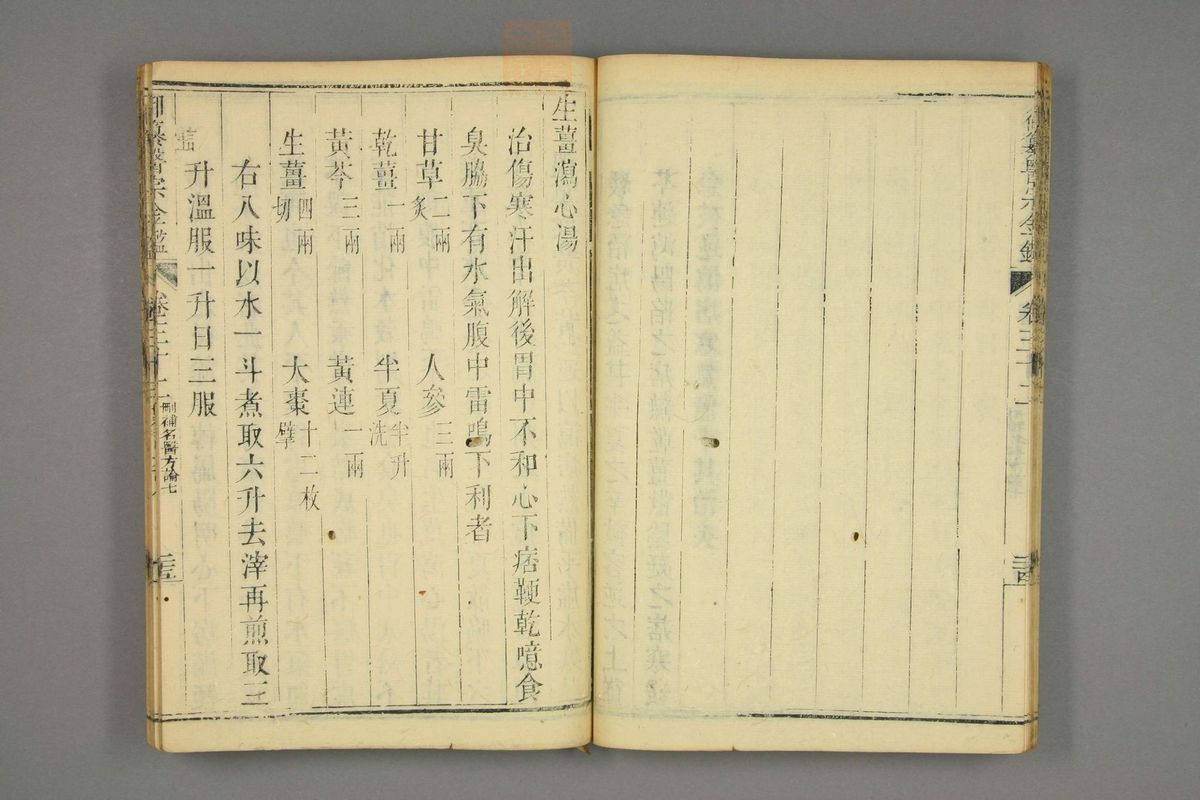 御纂醫宗金鑑
卷三十二
生薑瀉心湯
治傷寒汗出解後胃中不和心下痞鞕乾噫食
臭脇下有水氣腹中雷鳴下利者
甘草二兩炙 人參三兩
乾薑一兩 半夏半升洗
黃芩三兩 黃連一兩
生薑四兩切 大棗十二枚擘
右八味以水一斗煮取六升去滓再煎取三
升溫服一升日三服
御纂醫宗金鑑
卷三十二
刪補名醫方論七